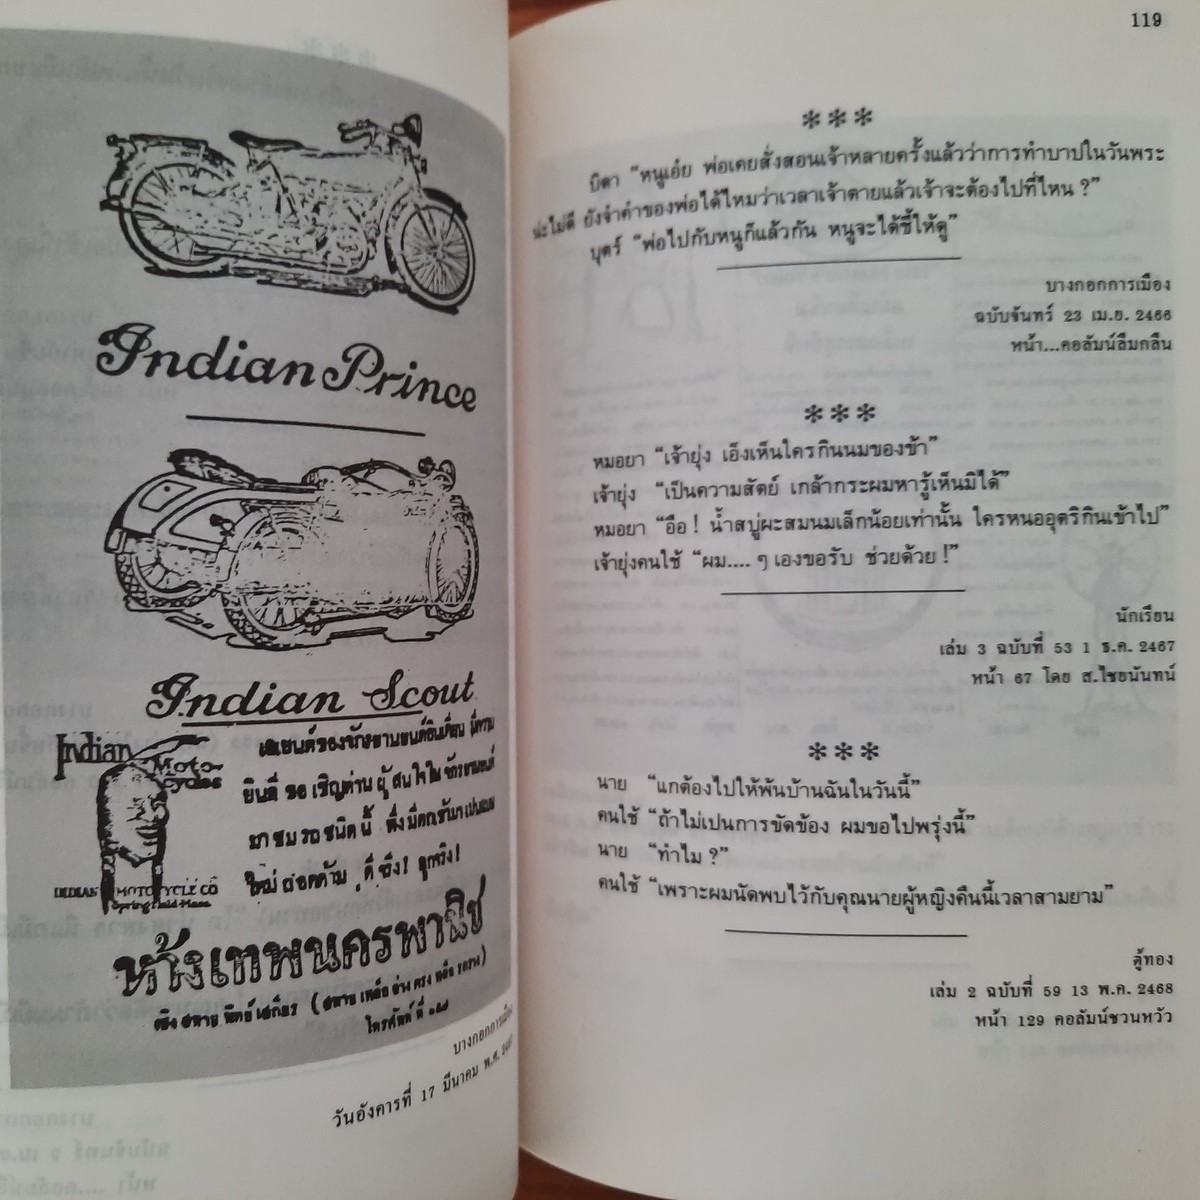 Indian Prince
Indian Scout
Indian
Moto-
cycles
INDIAN MOTOCYCLE CO
Springfield Mass
เอเยนต์ของจักรยานยนต์อินเดียน มีความ
ยินดี ขอ เชิญท่าน ผู้ สนใจใน จักรยานยนต์
มา ชม รถ ชนิด นี้ ซึ่ง มี
ใหม่ ดี จริง! ถูกจริง!
ห้างเทพนครพานิช
เชิง สพาน พิทย์เสถียร ( สพาน เหล็ก ล่าง ตรง หลีก รถราง)
โทรศัพท์ ที่
บางกอกการเมือง
วันอังคารที่ 17 มีนาคม พ.ศ.
119
***
บิดา “หนูเอ๋ย พ่อเคยสั่งสอนเจ้าหลายครั้งแล้วว่าการทำบาปในวันพระ
น่ะไม่ดี ยังจำคำของพ่อได้ไหมว่าเวลาเจ้าตายแล้วเจ้าจะต้องไปที่ไหน ?”
บุตร์ “พ่อไปกับหนูก็แล้วกัน หนูจะได้ชี้ให้ดู”
บางกอกการเมือง
ฉบับจันทร์ 23 เม.ย. 2466
หน้า...คอลัมน์ลืมกลืน
***
หมอยา “เจ้ายุ่ง เอ็งเห็นใครกินนมของข้า”
เจ้ายุ่ง “เป็นความสัตย์ เกล้ากระผมหารู้เห็นมิได้”
หมอยา “อือ ! น้ำสบู่ผะสมนมเล็กน้อยเท่านั้น ใครหนออุตริกินเข้าไป”
เจ้ายุ่งคนใช้ “ผม.... ๆ เองขอรับ ช่วยด้วย !”
นักเรียน
เล่ม 3 ฉบับที่ 53 1 ธ.ค. 2467
หน้า 67 โดย ส.ไชยนันทน์
***
นาย “แกต้องไปให้พ้นบ้านฉันในวันนี้”
คนใช้ “ถ้าไม่เปนการขัดข้อง ผมขอไปพรุ่งนี้”
นาย “ทำไม ?”
คนใช้ “เพราะผมนัดพบไว้กับคุณนายผู้หญิงคืนนี้เวลาสามยาม”
ตู้ทอง
เล่ม 2 ฉบับที่ 59 13 พ.ค. 2468
หน้า 129 คอลัมน์ชวนหวัว